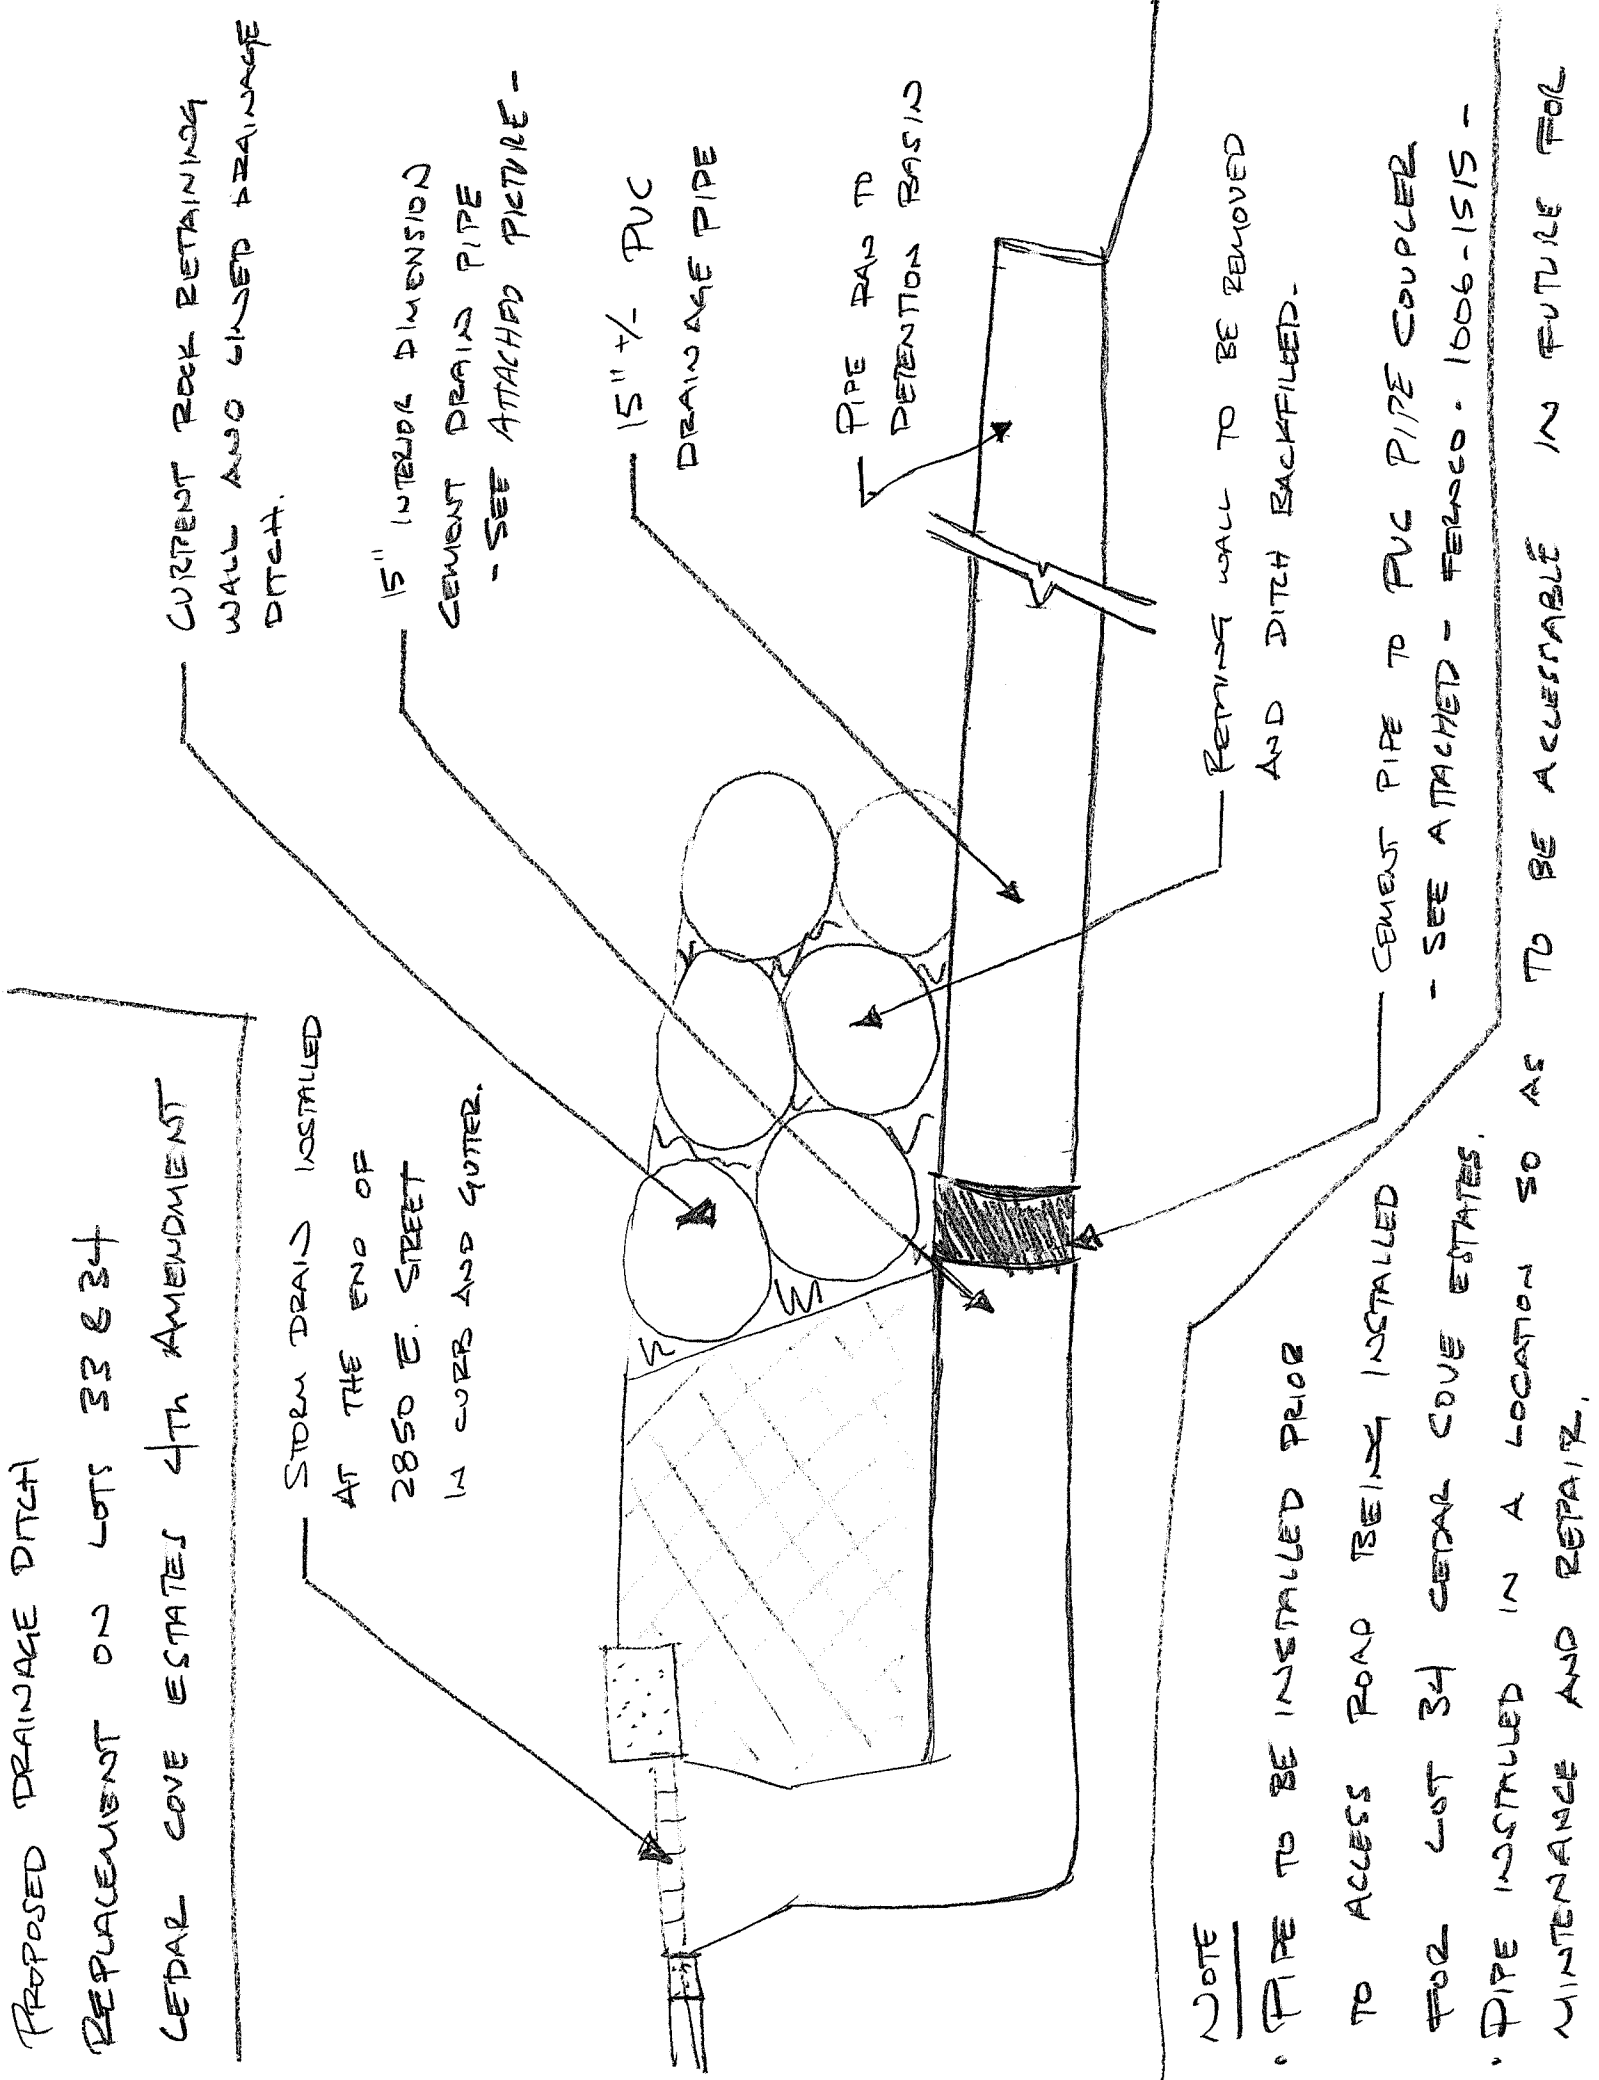 PROPOSED DRAINAGE DITCH
REPLACEMENT ON LOTS 33 & 34
CEDAR COVE ESTATES 4th AMENDMENT
STORM DRAIN INSTALLED
AT THE END OF
2850 E. STREET
IN CURB AND GUTTER.
CURRENT ROCK RETAINING
WALL AND LINED DRAINAGE
DITCH.
15" INTERIOR DIMENSION
CEMENT DRAIN PIPE
- SEE ATTACHED PICTURE -
15" +/- PVC
DRAINAGE PIPE
PIPE RAN TO
DETENTION BASIN
RETAINING WALL TO BE REMOVED
AND DITCH BACKFILLED.
CEMENT PIPE TO PVC PIPE COUPLER
- SEE ATTACHED - FERNCO. 1006-1515 -
NOTE
• PIPE TO BE INSTALLED PRIOR
TO ACCESS ROAD BEING INSTALLED
FOR LOT 34 CEDAR COVE ESTATES.
• PIPE INSTALLED IN A LOCATION SO AS TO BE ACCESSABLE IN FUTURE FOR
MINTENANCE AND REPAIR.